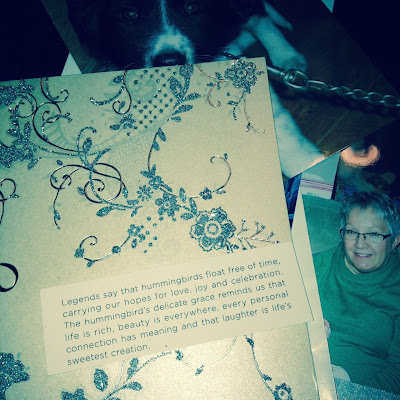 Legends say that hummingbirds float free of time,
carrying our hopes for love, joy and celebration.
The hummingbird's delicate grace reminds us that
life is rich, beauty is everywhere, every personal
connection has meaning and that laughter is life's
sweetest creation.